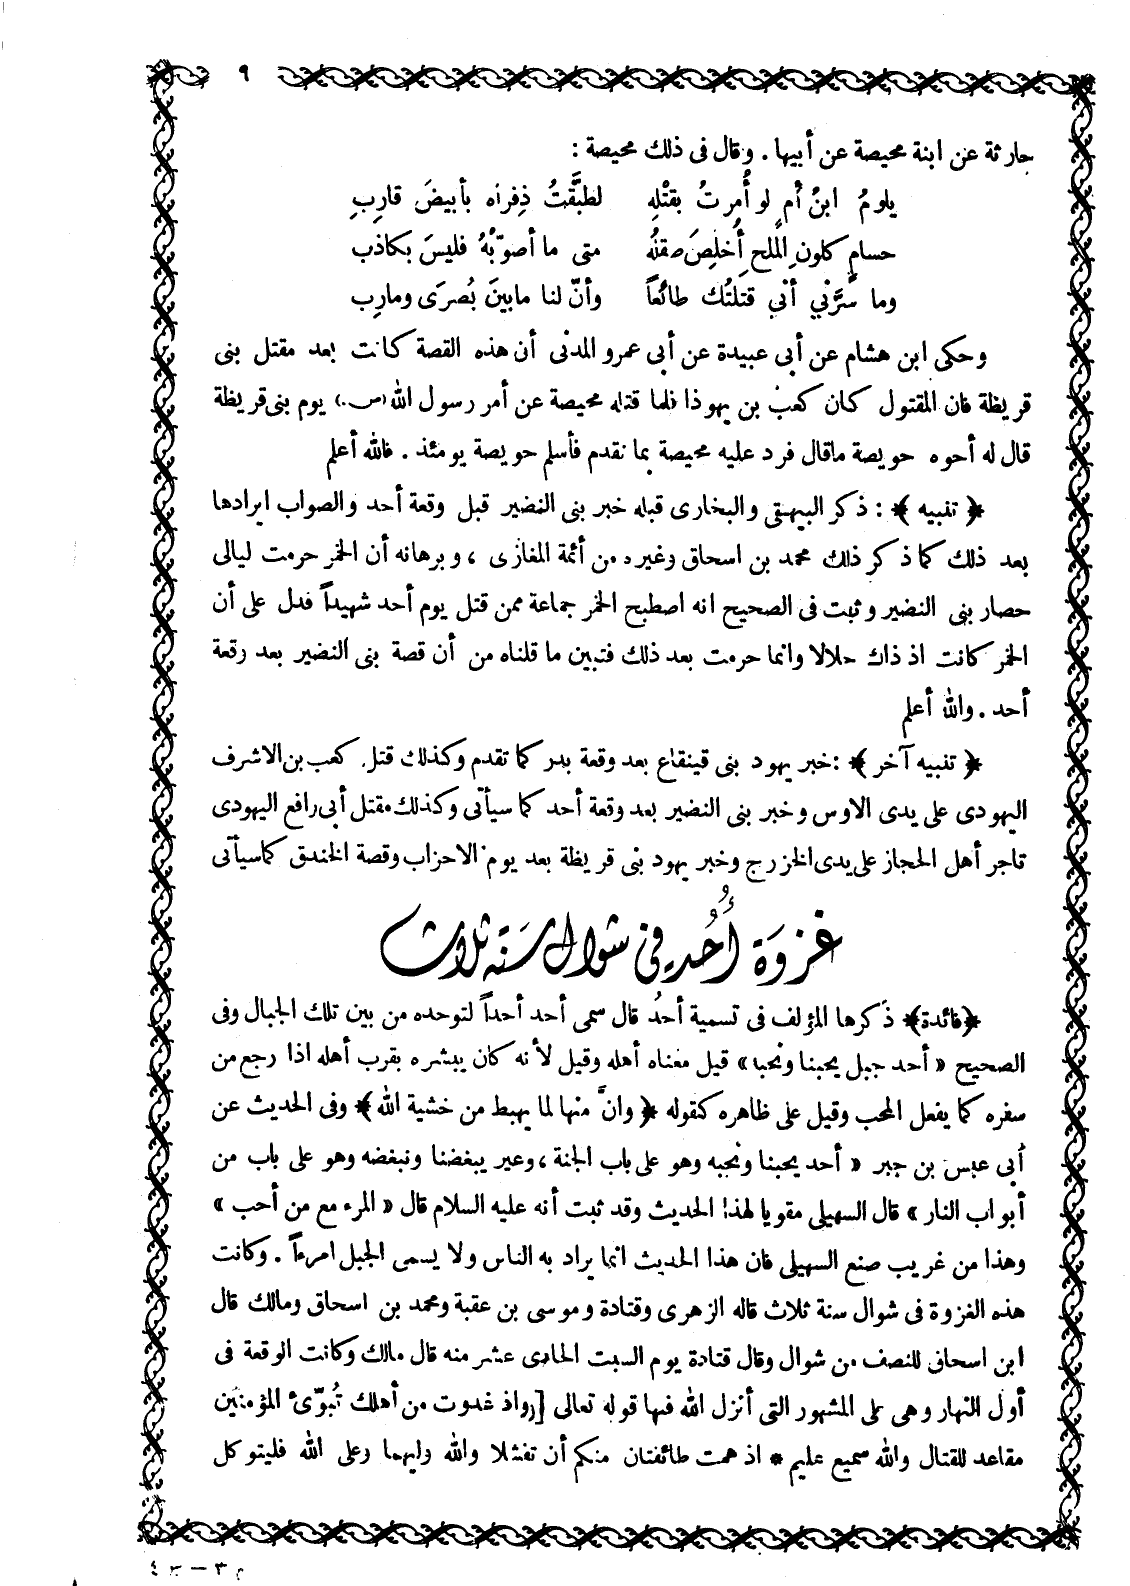 ٩
حارثة عن ابنة محيصة عن أبيها . وقال فى ذلك محيصة :
يلومُ ابنُ أم لو أُمرتُ بقتْلِهِ لطبَّقتُ ذِفراه بأبيضَ قارِبِ
حسامٍ كلونِ المُلح أُخلِصَ صقلهُ متى ما أصوّبْهُ فليسَ بكاذب
وما سَرَّني أني قتلتُك طائعاً وأنّ لنا مابينَ بُصرَى ومارِب
وحكى ابن هشام عن أبى عبيدة عن أبى عمرو المدنى أن هذه القصة كانت بعد مقتل بنى
قريظة فان المقتول كان كعب بن يهوذا فلما قتله محيصة عن أمر رسول الله (ص.) يوم بنى قريظة
قال له أخوه حويصة ماقال فرد عليه محيصة بما تقدم فأسلم حويصة يومئذ . فالله أعلم
﴿ تنبيه ﴾ : ذكر البيهقى والبخارى قبله خبر بنى النضير قبل وقعة أحد والصواب ايرادها
بعد ذلك كما ذكر ذلك محمد بن اسحاق وغيره من أئمة المغازى ، وبرهانه أن الخمر حرمت ليالى
حصار بنى النضير وثبت فى الصحيح انه اصطبح الخمر جماعة ممن قتل يوم أحد شهيداً فدل على أن
الخمر كانت اذ ذاك حلالا وانما حرمت بعد ذلك فتبين ما قلناه من أن قصة بنى النضير بعد رقعة
أحد . والله أعلم
﴿ تنبيه آخر ﴾ : خبر يهود بنى قينقاع بعد وقعة بدر كما تقدم وكذلك قتل كعب بن الاشرف
اليهودى على يدى الاوس وخبر بنى النضير بعد وقعة أحد كما سيأتى وكذلك مقتل أبى رافع اليهودى
تاجر أهل الحجاز على يدى الخزرج وخبر يهود بنى قريظة بعد يوم الاحزاب وقصة الخندق كماسيأتى
غزوة أُحُد فى شوال سنة ثلاث
﴿فائدة﴾ ذكرها المؤلف فى تسمية أحُد قال سمى أحد أحداً لتوحده من بين تلك الجبال وفى
الصحيح « أحد جبل يحبنا ونحبه » قيل معناه أهله وقيل لأنه كان يبشره بقرب أهله اذا رجع من
سفره كما يفعل المحب وقيل على ظاهره كقوله ﴿ وانَّ منها لما يهبط من خشية الله ﴾ وفى الحديث عن
أبي عبس بن جبر « أحد يحبنا ونحبه وهو على باب الجنة ، وعير يبغضنا ونبغضه وهو على باب من
أبواب النار » قال السهيلى مقويا لهذا الحديث وقد ثبت أنه عليه السلام قال « المرء مع من أحب »
وهذا من غريب صنع السهيلى فان هذا الحديث انما يراد به الناس ولا يسمى الجبل امرءاً . وكانت
هذه الغزوة فى شوال سنة ثلاث قاله الزهرى وقتادة وموسى بن عقبة ومحمد بن اسحاق ومالك قال
ابن اسحاق للنصف من شوال وقال قتادة يوم السبت الحادى عشر منه قال مالك وكانت الوقعة فى
أول النهار وهى على المشهور التى أنزل الله فيها قوله تعالى [ واذ غدوت من أهلك تُبوّئ المؤمنين
مقاعد للقتال والله سميع عليم * اذ همت طائفتان منكم أن تفشلا والله وليهما وعلى الله فليتوكل
م ٣ — ج ٤